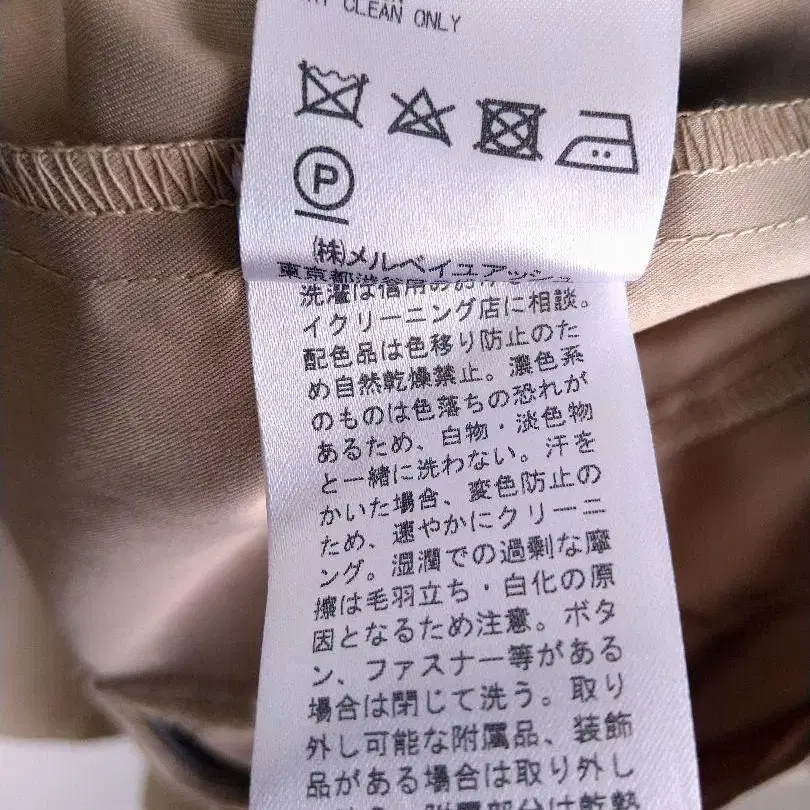 CLEAN ONLY
P
㈱メルベイユアッシュ
東京都渋谷
洗濯は信用のお
イクリーニング店に相談。
配色品は色移り防止のた
め自然乾燥禁止。濃色系
のものは色落ちの恐れが
あるため、白物・淡色物
と一緒に洗わない。汗を
かいた場合、変色防止の
ため、速やかにクリーニ
ング。湿潤での過剰な摩
擦は毛羽立ち・白化の原
因となるため注意。ボタ
ン、ファスナー等がある
場合は閉じて洗う。取り
外し可能な附属品、装飾
品がある場合は取り外し
附属部分は乾熱